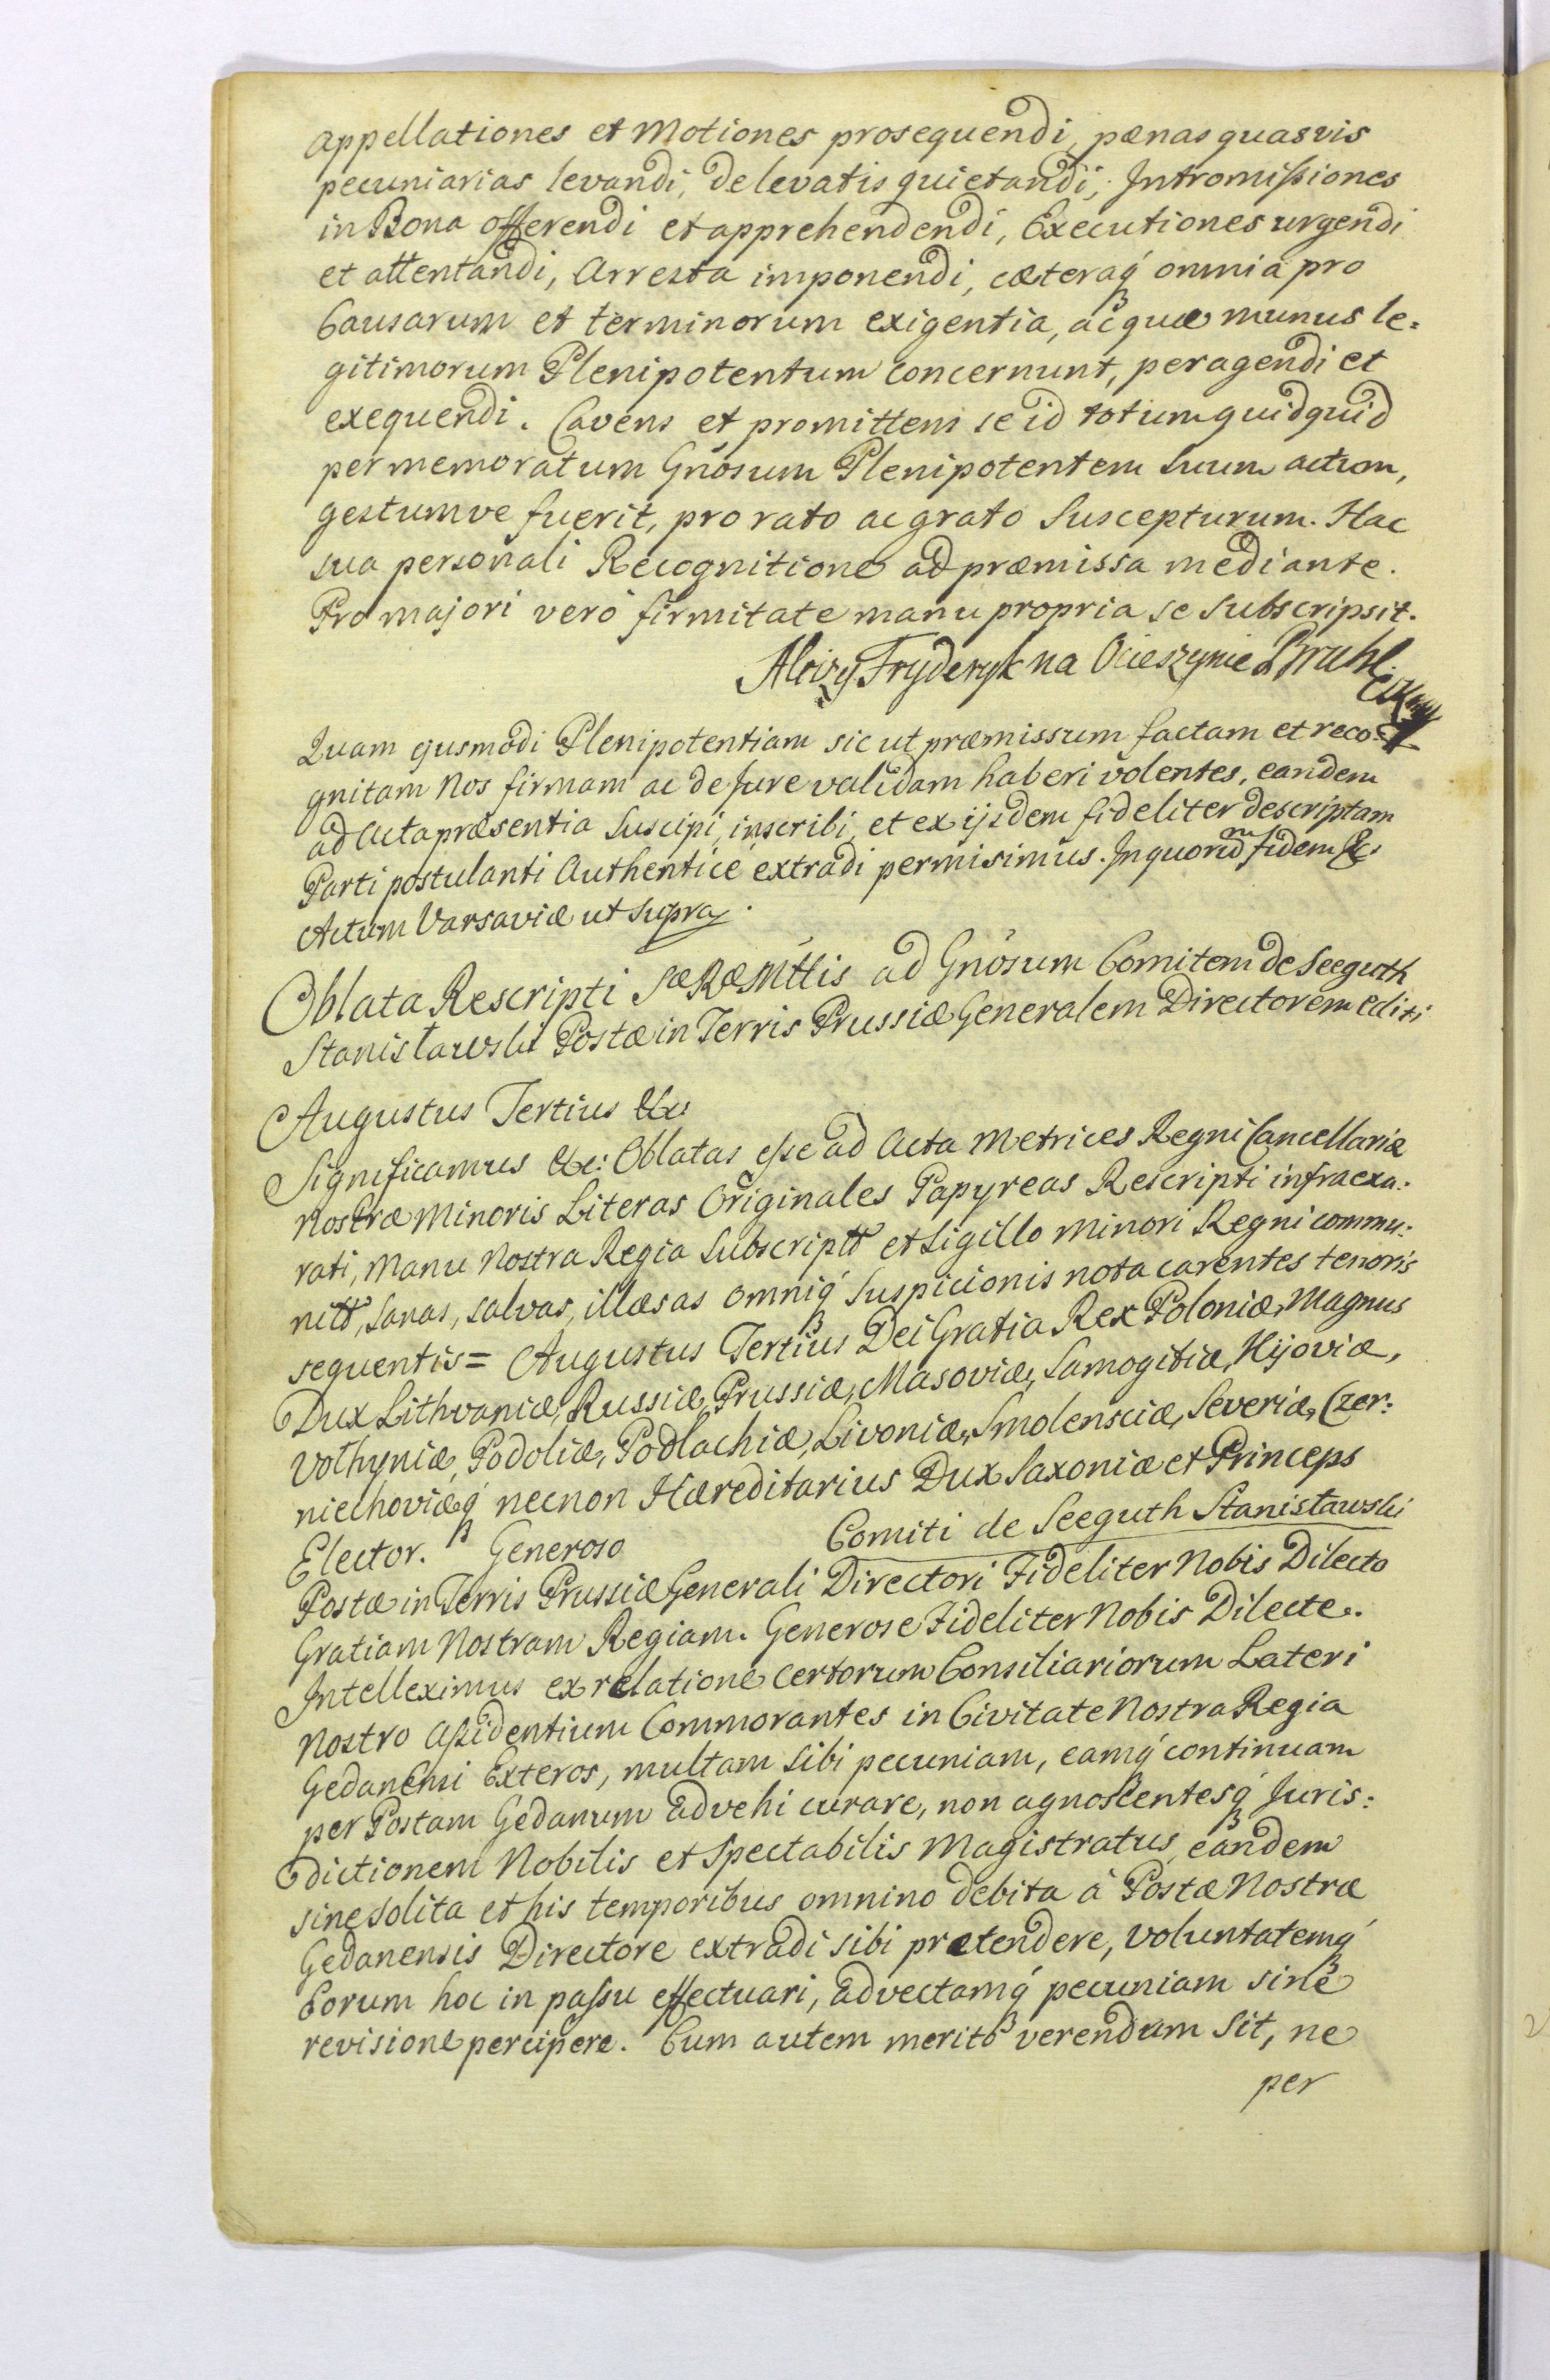 appellationes et Motiones prosequendi, pænas quasvis
pecuniarias levandi, de levatis quietandi, Intromissiones
in Bona offerendi et apprehendendi, Executiones urgendi
et attentandi, Arresta imponendi, cæteraq́ omnia pro
Causarum et terminorum exigentia, ac quæ munus le=
gitimorum Plenipotentum concernunt, peragendi et
exequendi. Cavens et promittens se id totum quidquid
per memoratum Gnosum Plenipotentem Suum actum,
gestumve fuerit, pro rato ac grato Suscepturum. Hac
sua personali Recognitione ad præmissa mediante.
Pro majori verò firmitate manu propria se Subscripsit.
Aloizy Fryderyk na Ocieszynie Brühl
Quam ejusmodi Plenipotentiam sic ut præmissum factam et reco=
gnitam Nos firmam ac de Jure validam haberi volentes, eandem
ad Acta præsentia Suscipi, inscribi, et ex ijsdem fideliter descriptam
Parti postulanti Authenticè extradi permisimus. In quorum fidem &c
Actum Varsaviæ ut Supra.
Oblata Rescripti SæRæMttis ad Gnosum Comitem de Seeguth
Stanisławski Postæ in Terris Prussiæ Generalem Directorem editi
Augustus Tertius &c:
Significamus &c: Oblatas esse ad Acta Metrices Regni Cancellariæ
Nostræ Minoris Literas Originales Papyreas Rescripti infra exa=
rati, Manu Nostra Regia Subscriptt et Sigillo Minori Regni commu=
nitt, Sanas, salvas, illæsas omniq́ Suspicionis nota carentes tenoris
sequentis = Augustus Tertius Dei Gratia Rex Poloniæ, Magnus
Dux Lithvaniæ, Russiæ, Prussiæ, Masoviæ, Samogitiæ, Kijoviæ,
Volhyniæ, Podoliæ, Podlachiæ, Livoniæ, Smolensciæ, Severiæ, Czer=
niechoviæq́ necnon Hæreditarius Dux Saxoniæ et Princeps
Elector. Generoso Comiti de Seeguth Stanisławski
Postæ in Terris Prussiæ Generali Directori Fideliter Nobis Dilecto
Gratiam Nostram Regiam. Generose Fideliter Nobis Dilecte.
Intelleximus ex relatione certorum Consiliariorum Lateri
Nostro Assidentium Commorantes in Civitate Nostra Regia
Gedanensi Exteros, multam sibi pecuniam, eamq́ continuam
per Postam Gedanum advehi curare, non agnoscentesq́ Juris=
dictionem Nobilis et Spectabilis Magistratus, eandem
sine solita et his temporibus omnino debita à Postæ Nostræ
Gedanensis Directore extradi sibi prætendere, voluntatemq́
Eorum hoc in passu effectuari, advectamq́ pecuniam sine
revisione percipere. Cum autem meritò verendum sit, ne
per